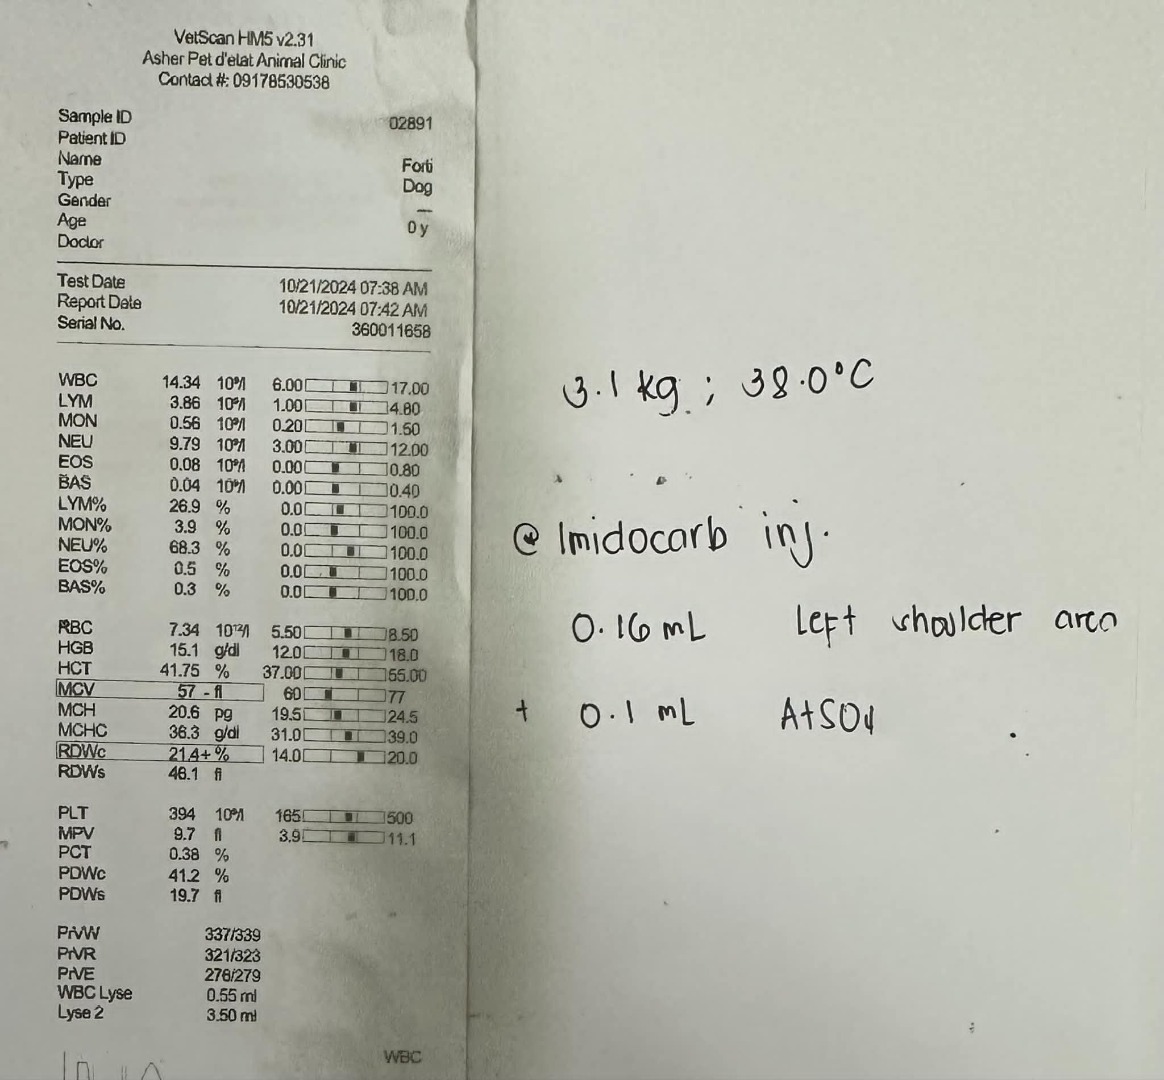 VetScan HM5 v2.31
Asher Pet d'etat Animal Clinic
Contact #: 09178530538
Sample ID 02891
Patient ID
Name Forti
Type Dog
Gender —
Age 0 y
Doctor
Test Date 10/21/2024 07:38 AM
Report Date 10/21/2024 07:42 AM
Serial No. 360011658
WBC 14.34 10⁹/l 6.00 17.00
LYM 3.86 10⁹/l 1.00 4.80
MON 0.56 10⁹/l 0.20 1.50
NEU 9.79 10⁹/l 3.00 12.00
EOS 0.08 10⁹/l 0.00 0.80
BAS 0.04 10⁹/l 0.00 0.40
LYM% 26.9 % 0.0 100.0
MON% 3.9 % 0.0 100.0
NEU% 68.3 % 0.0 100.0
EOS% 0.5 % 0.0 100.0
BAS% 0.3 % 0.0 100.0
RBC 7.34 10¹²/l 5.50 8.50
HGB 15.1 g/dl 12.0 18.0
HCT 41.75 % 37.00 55.00
MCV 57 - fl 60 77
MCH 20.6 pg 19.5 24.5
MCHC 36.3 g/dl 31.0 39.0
RDWc 21.4+ % 14.0 20.0
RDWs 46.1 fl
PLT 394 10⁹/l 165 500
MPV 9.7 fl 3.9 11.1
PCT 0.38 %
PDWc 41.2 %
PDWs 19.7 fl
PrVW 337/339
PrVR 321/323
PrVE 278/279
WBC Lyse 0.55 ml
Lyse 2 3.50 ml
WBC
3.1 kg ; 38.0°C
@ Imidocarb inj.
0.16 mL Left shoulder area
+ 0.1 mL AtSO4